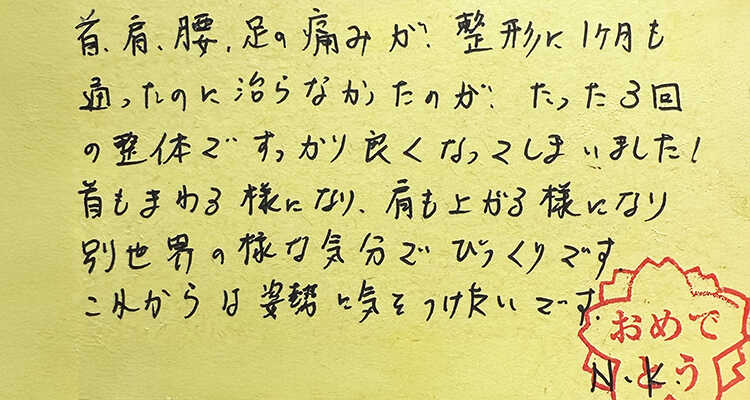 首、肩、腰、足の痛みが、整形に1ヶ月も
通ったのに治らなかったのが、たった3回
の整体ですっかり良くなってしまいました!
首もまわる様になり、肩も上がる様になり
別世界の様な気分でびっくりです
これからは姿勢に気をつけたいです.
おめで
とう
N.K.